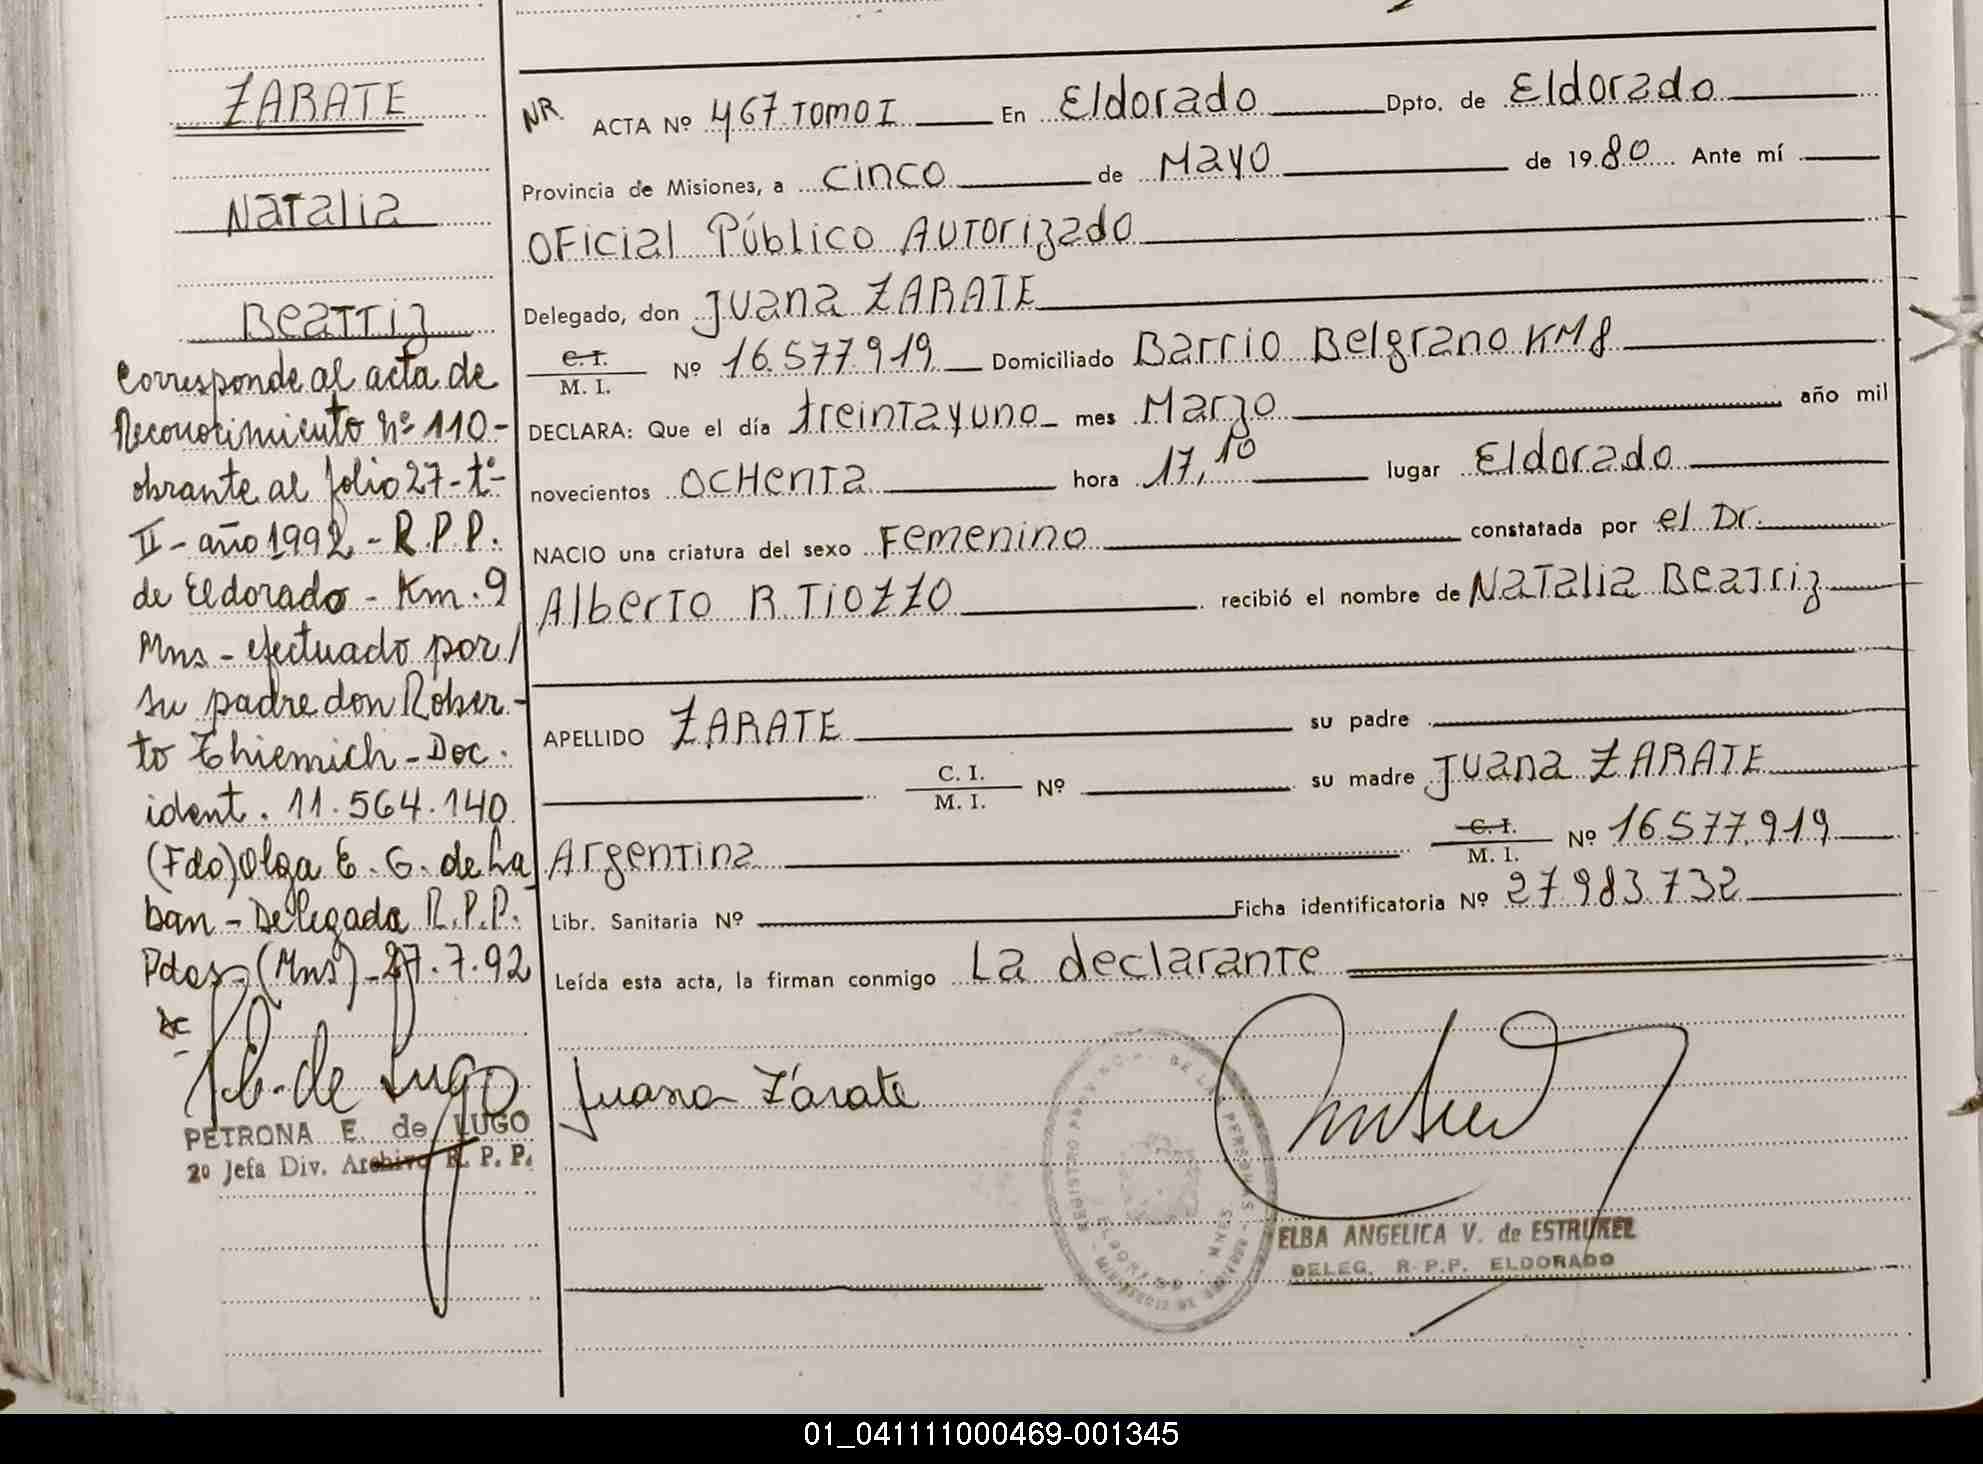 ZARATE
Natalia
Beatriz
Corresponde al acta de
Reconocimiento nº 110-
obrante al folio 27-tº-
II-año 1992-R.P.P.
de Eldorado-Km.9
Mns-efectuado por/
su padre don Rober-
to Thiemich-Doc.
ident. 11.564.140
(Fdo) Olga E. G. de La
ban-Delegada R.P.P.
Pdas-(Mns)-27.7.92
P.E. de Lugo
PETRONA E. de LUGO
2º Jefa Div. Archivo R. P. P.
NR ACTA Nº 467 TOMO I En Eldorado Dpto. de Eldorado
Provincia de Misiones, a cinco de Mayo de 1980 Ante mí
Oficial Público Autorizado
Delegado, don Juana ZARATE
C.I. M. I. Nº 16.577.919 Domiciliado Barrio Belgrano KM 8
DECLARA: Que el día treinta y uno mes Marzo año mil
novecientos ochenta hora 17,10 lugar Eldorado
NACIO una criatura del sexo Femenino constatada por el Dr.
Alberto R. TIOZZO recibió el nombre de Natalia Beatriz
APELLIDO ZARATE su padre
C. I. M. I. Nº su madre Juana ZARATE
Argentina C. I. M. I. Nº 16.577.919
Libr. Sanitaria Nº Ficha identificatoria Nº 27.983.732
Leída esta acta, la firman conmigo La declarante
Juana Zárate
REGISTRO PROVINCIAL DE LAS PERSONAS - MINISTERIO DE
ELDORADO - MNES.
ELBA ANGELICA V. de ESTRUKEL
DELEG. R.P.P. ELDORADO
01_041111000469-001345